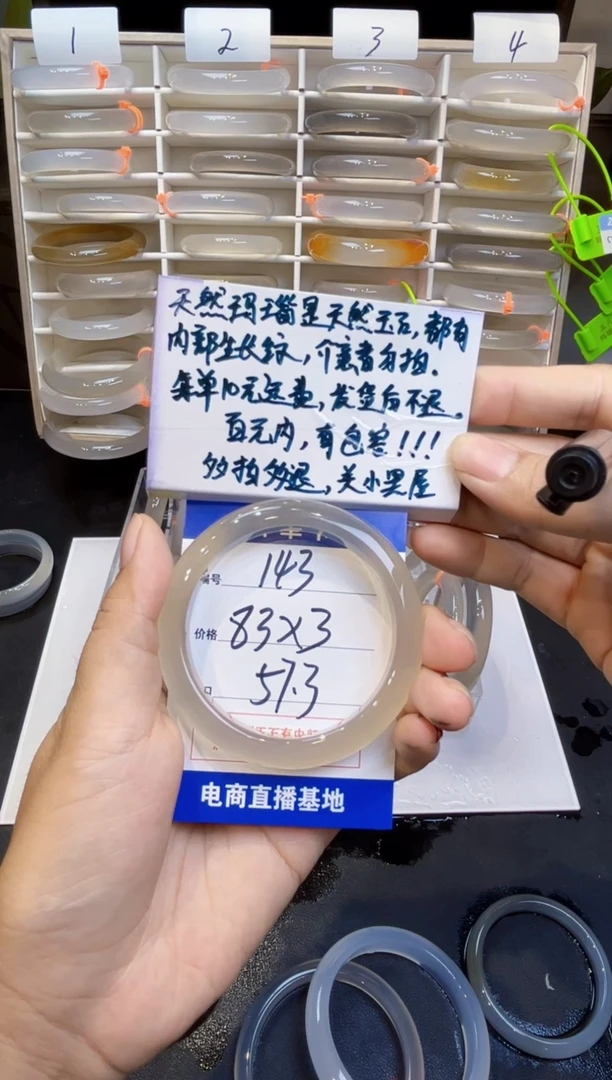 1
2
3
4
天然玛瑙是天然玉石,都有
内部生长纹,介意者勿拍.
每单10元运费,发货后不退.
百元内,有包容!!!
多拍多退,关小黑屋
编号 143
价格 83x3
口 57.3
电商直播基地